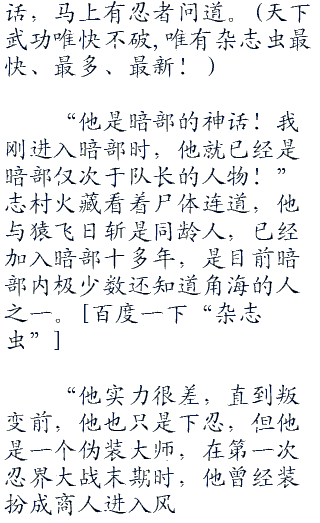 话，马上有忍者问道。(天下
武功唯快不破,唯有杂志虫最
快、最多、最新！)
“他是暗部的神话！我
刚进入暗部时，他就已经是
暗部仅次于队长的人物！”
志村火藏看着尸体连道，他
与猿飞日斩是同龄人，已经
加入暗部十多年，是目前暗
部内极少数还知道角海的人
之一。[百度一下“杂志
虫”]
“他实力很差，直到叛
变前，他也只是下忍，但他
是一个伪装大师，在第一次
忍界大战末期时，他曾经装
扮成商人进入风